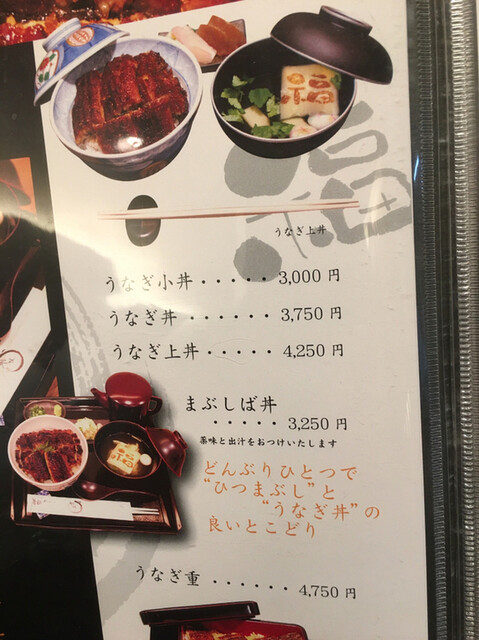 福
福
うなぎ上丼
うなぎ小丼・・・・・3,000 円
うなぎ丼・・・・・・3,750 円
うなぎ上丼・・・・・4,250 円
まぶしば丼
・・・・・3,250 円
薬味と出汁をおつけいたします
どんぶりひとつで
“ひつまぶし”と
“うなぎ丼”の
良いとこどり
うなぎ重 ・・・・・・4,750 円